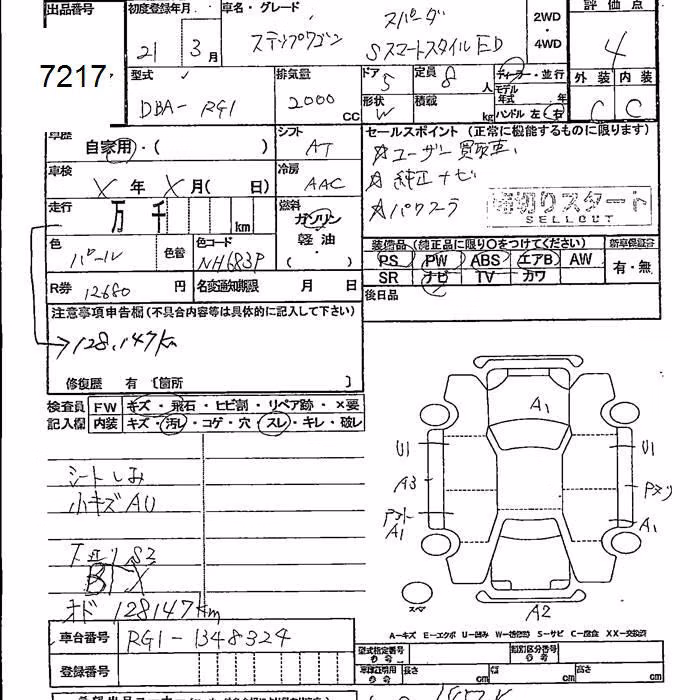 出品番号 初度登録年月 車名・グレード 2WD・4WD 評価点
7217 21年 3月 ステップワゴン スパーダ SスマートスタイルED 4
型式 排気量 ドア 5 定員 8人 ディーラー・並行 外装 内装
DBA-RG1 2000CC 形状 W 積載 kg モデル年式 年 ハンドル 左 右 C C
車歴 自家用・( ) シフト AT セールスポイント (正常に機能するものに限ります)
車検 X年 X月( 日) 冷房 AAC ☆ユーザー買取車
☆純正ナビ
走行 万 千 km 燃料 ガソリン 軽油・( ) ☆パワスラ
売切りスタート
SELLOUT
色 パール 色替 色コード NH683P 装備品 (純正品に限り○をつけてください) 新車保証書
PS PW ABS エアB AW 有・無
SR ナビ TV カワ
R券 12680円 名変通知期限 月 日 後日品
注意事項申告欄(不具合内容等は具体的に記入して下さい)
→128,147km
修復歴 有 〔箇所 〕
検査員 FW キズ・飛石・ヒビ割・リペア跡・×要
記入欄 内装 キズ・汚レ・コゲ・穴・スレ・キレ・破レ
A1
U1 U1
シートしみ A3
小キズAU
A1 A1
S2
オド 128147km スペア A2
A-キズ E-エクボ U-凹み S-サビ C-腐食 XX-交換済
車台番号 RG1-1348324 型式指定番号 類別区分番号
登録番号 長さ cm 幅 cm 高さ cm